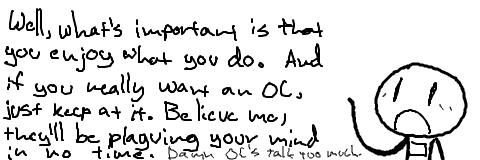 Well, what's important is that
you enjoy what you do. And
if you really want an OC,
just keep at it. Believe me,
they'll be plaguing your mind
in no time. Damn OC's talk too much.